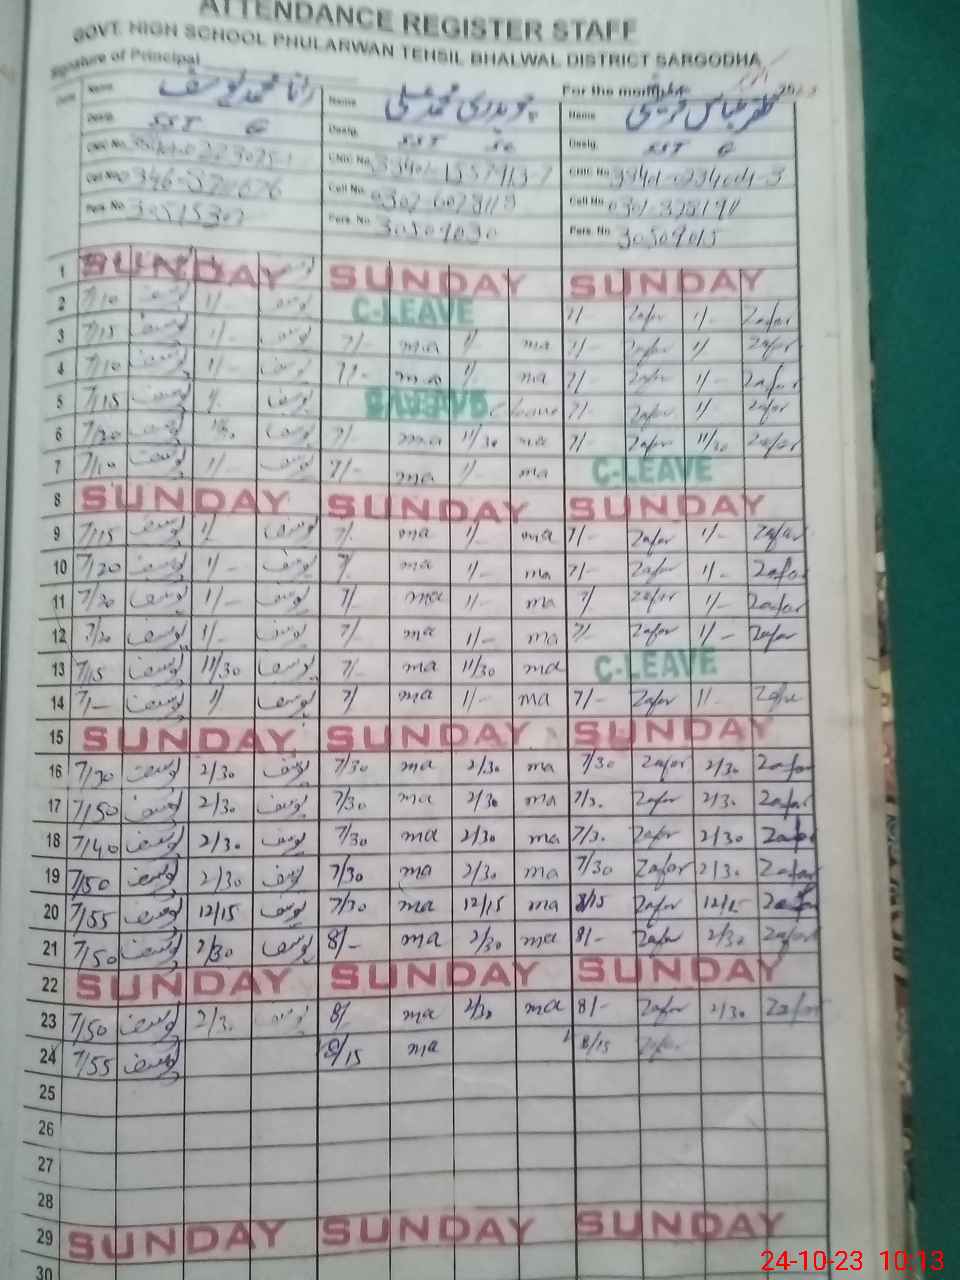 ATTENDANCE REGISTER STAFF
GOVT. HIGH SCHOOL PHULARWAN TEHSIL BHALWAL DISTRICT SARGODHA
Signature of Principal For the month
Name رانا محمد یوسف Name چوہدری محمد علی Name ظفر عباس قریشی
Desig. SST Desig. SST Desig. SST
CNIC No. CNIC No. CNIC No.
Cell No. Cell No. Cell No.
Pers. No. 30515302 Pers. No. 30509030 Pers. No. 30509015
1 SUNDAY SUNDAY SUNDAY
2 7/10 یوسف 1/- یوسف C-LEAVE 7/- Zafar 1/- Zafar
3 7/15 یوسف 1/- یوسف 7/- ma 1/- ma 7/- Zafar 1/- Zafar
4 7/10 یوسف 1/- یوسف 7/- ma 1/- ma 7/- Zafar 1/- Zafar
5 7/15 یوسف 1/- یوسف C leave 7/- Zafar 1/- Zafar
6 7/20 یوسف یوسف 7/- ma 11/30 ma 7/- Zafar 11/30 Zafar
7 7/10 یوسف 1/- یوسف 7/- ma 1/- ma C-LEAVE
8 SUNDAY SUNDAY SUNDAY
9 7/15 یوسف 1/ یوسف 7/- ma 1/- ma 7/- Zafar 1/- Zafar
10 7/20 یوسف 1/- یوسف 7/- ma 1/- ma 7/- Zafar 1/- Zafar
11 7/20 یوسف 1/- یوسف 7/- ma 1/- ma 7/- Zafar 1/- Zafar
12 7/20 یوسف 1/- یوسف 7/- ma 1/- ma 7/- Zafar 1/- Zafar
13 7/15 یوسف 11/30 یوسف 7/- ma 11/30 ma C-LEAVE
14 7/- یوسف 1/ یوسف 7/ ma 1/- ma 7/- Zafar 1/- Zafar
15 SUNDAY SUNDAY SUNDAY
16 7/30 یوسف 2/30 یوسف 7/30 ma 2/30 ma 7/30 Zafar 2/30 Zafar
17 7/50 یوسف 2/30 یوسف 7/30 ma 2/30 ma 7/30 Zafar 2/30 Zafar
18 7/40 یوسف 2/30 یوسف 7/30 ma 2/30 ma 7/30 Zafar 2/30 Zafar
19 7/50 یوسف 2/30 یوسف 7/30 ma 2/30 ma 7/30 Zafar 2/30 Zafar
20 7/55 یوسف 12/15 یوسف 7/30 ma 12/15 ma 8/15 Zafar 12/15 Zafar
21 7/50 یوسف 2/30 یوسف 8/- ma 2/30 ma 8/- Zafar 2/30 Zafar
22 SUNDAY SUNDAY SUNDAY
23 7/50 یوسف 2/30 یوسف 8/ ma 2/30 ma 8/- Zafar 2/30 Zafar
24 7/55 یوسف 8/15 ma 8/15 Zafar
25
26
27
28
29 SUNDAY SUNDAY SUNDAY
30
24-10-23 10:13